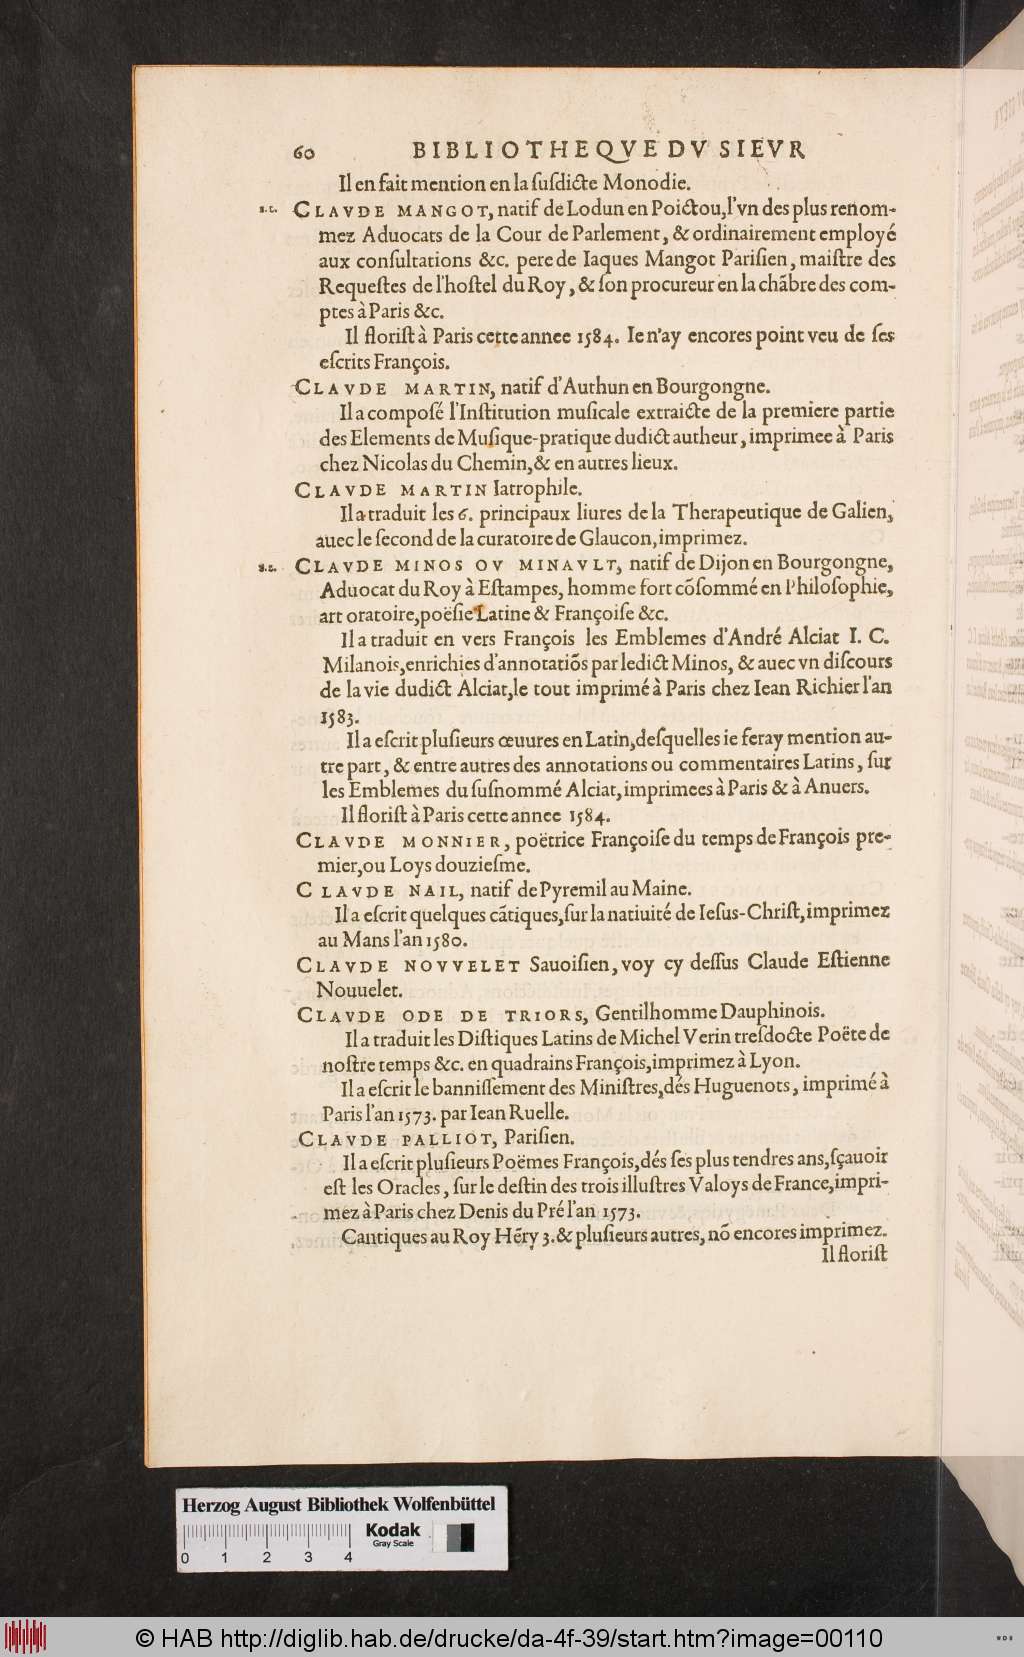 60 BIBLIOTHEQVE DV SIEVR
Il en fait mention en la ſuſdicte Monodie.
CLAVDE MANGOT, natif de Lodun en Poictou, l'vn des plus renom-
mez Aduocats de la Cour de Parlement, & ordinairement employé
aux conſultations &c. pere de Iaques Mangot Pariſien, maiſtre des
Requeſtes de l'hoſtel du Roy, & ſon procureur en la chãbre des com-
ptes à Paris &c.
Il floriſt à Paris cette annee 1584. Ie n'ay encores point veu de ſes
eſcrits François.
CLAVDE MARTIN, natif d'Authun en Bourgongne.
Il a compoſé l'Inſtitution muſicale extraicte de la premiere partie
des Elements de Muſique-pratique dudict autheur, imprimee à Paris
chez Nicolas du Chemin, & en autres lieux.
CLAVDE MARTIN Iatrophile.
Il a traduit les 6. principaux liures de la Therapeutique de Galien,
auec le ſecond de la curatoire de Glaucon, imprimez.
CLAVDE MINOS OV MINAVLT, natif de Dijon en Bourgongne,
Aduocat du Roy à Eſtampes, homme fort cõſommé en Philoſophie,
art oratoire, poëſie Latine & Françoiſe &c.
Il a traduit en vers François les Emblemes d'André Alciat I. C.
Milanois, enrichies d'annotatiõs par ledict Minos, & auec vn diſcours
de la vie dudict Alciat, le tout imprimé à Paris chez Iean Richier l'an
1583.
Il a eſcrit pluſieurs œuures en Latin, deſquelles ie feray mention au-
tre part, & entre autres des annotations ou commentaires Latins, ſur
les Emblemes du ſuſnommé Alciat, imprimees à Paris & à Anuers.
Il floriſt à Paris cette annee 1584.
CLAVDE MONNIER, poëtrice Françoiſe du temps de François pre-
mier, ou Loys douzieſme.
CLAVDE NAIL, natif de Pyremil au Maine.
Il a eſcrit quelques cãtiques, ſur la natiuité de Ieſus-Chriſt, imprimez
au Mans l'an 1580.
CLAVDE NOVVELET Sauoiſien, voy cy deſſus Claude Eſtienne
Nouuelet.
CLAVDE ODE DE TRIORS, Gentilhomme Dauphinois.
Il a traduit les Diſtiques Latins de Michel Verin treſdocte Poëte de
noſtre temps &c. en quadrains François, imprimez à Lyon.
Il a eſcrit le banniſſement des Miniſtres, dés Huguenots, imprimé à
Paris l'an 1573. par Iean Ruelle.
CLAVDE PALLIOT, Pariſien.
Il a eſcrit pluſieurs Poëmes François, dés ſes plus tendres ans, ſçauoir
eſt les Oracles, ſur le deſtin des trois illuſtres Valoys de France, impri-
mez à Paris chez Denis du Pré l'an 1573.
Cantiques au Roy Hẽry 3. & pluſieurs autres, nõ encores imprimez.
Il floriſt
Herzog August Bibliothek Wolfenbüttel
0 1 2 3 4
Kodak
Gray Scale
© HAB http://diglib.hab.de/drucke/da-4f-39/start.htm?image=00110